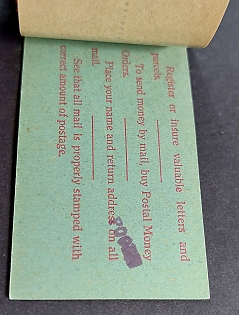 Register or insure valuable letters and
parcels.
To send money by mail, buy Postal Money
Orders.
Place your name and return address on all
mail.
See that all mail is properly stamped with
correct amount of postage.